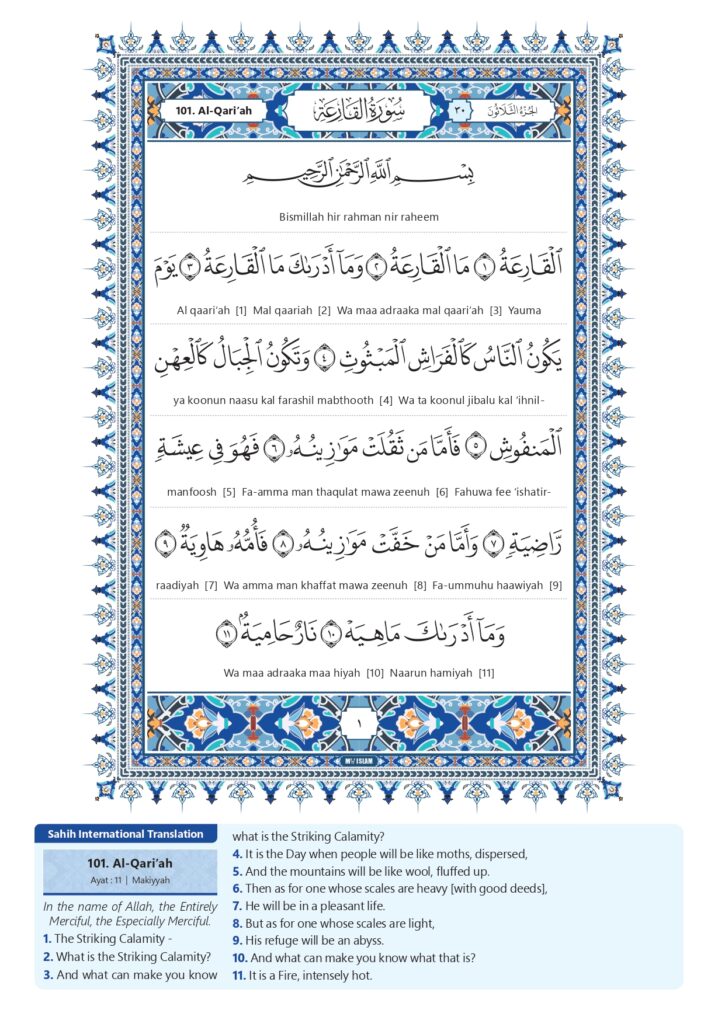 101. Al-Qari’ah
سُورَةُ القَارِعَةِ
٣٠
الجُزءُ الثَّلَاثُونَ
بِسْمِ ٱللَّهِ ٱلرَّحْمَٰنِ ٱلرَّحِيمِ
Bismillah hir rahman nir raheem
ٱلْقَارِعَةُ ١ مَا ٱلْقَارِعَةُ ٢ وَمَآ أَدْرَىٰكَ مَا ٱلْقَارِعَةُ ٣ يَوْمَ
Al qaari’ah [1] Mal qaariah [2] Wa maa adraaka mal qaari’ah [3] Yauma
يَكُونُ ٱلنَّاسُ كَٱلْفَرَاشِ ٱلْمَبْثُوثِ ٤ وَتَكُونُ ٱلْجِبَالُ كَٱلْعِهْنِ
ya koonun naasu kal farashil mabthooth [4] Wa ta koonul jibalu kal ‘ihnil-
ٱلْمَنفُوشِ ٥ فَأَمَّا مَن ثَقُلَتْ مَوَٰزِينُهُۥ ٦ فَهُوَ فِى عِيشَةٍ
manfoosh [5] Fa-amma man thaqulat mawa zeenuh [6] Fahuwa fee ‘ishatir-
رَّاضِيَةٍ ٧ وَأَمَّا مَنْ خَفَّتْ مَوَٰزِينُهُۥ ٨ فَأُمُّهُۥ هَاوِيَةٌ ٩
raadiyah [7] Wa amma man khaffat mawa zeenuh [8] Fa-ummuhu haawiyah [9]
وَمَآ أَدْرَىٰكَ مَا هِيَهْ ١٠ نَارٌ حَامِيَةٌۢ ١١
Wa maa adraaka maa hiyah [10] Naarun hamiyah [11]
١
MY ISLAM
Sahih International Translation
101. Al-Qari’ah
Ayat : 11 | Makiyyah
In the name of Allah, the Entirely
Merciful, the Especially Merciful.
1. The Striking Calamity -
2. What is the Striking Calamity?
3. And what can make you know
what is the Striking Calamity?
4. It is the Day when people will be like moths, dispersed,
5. And the mountains will be like wool, fluffed up.
6. Then as for one whose scales are heavy [with good deeds],
7. He will be in a pleasant life.
8. But as for one whose scales are light,
9. His refuge will be an abyss.
10. And what can make you know what that is?
11. It is a Fire, intensely hot.